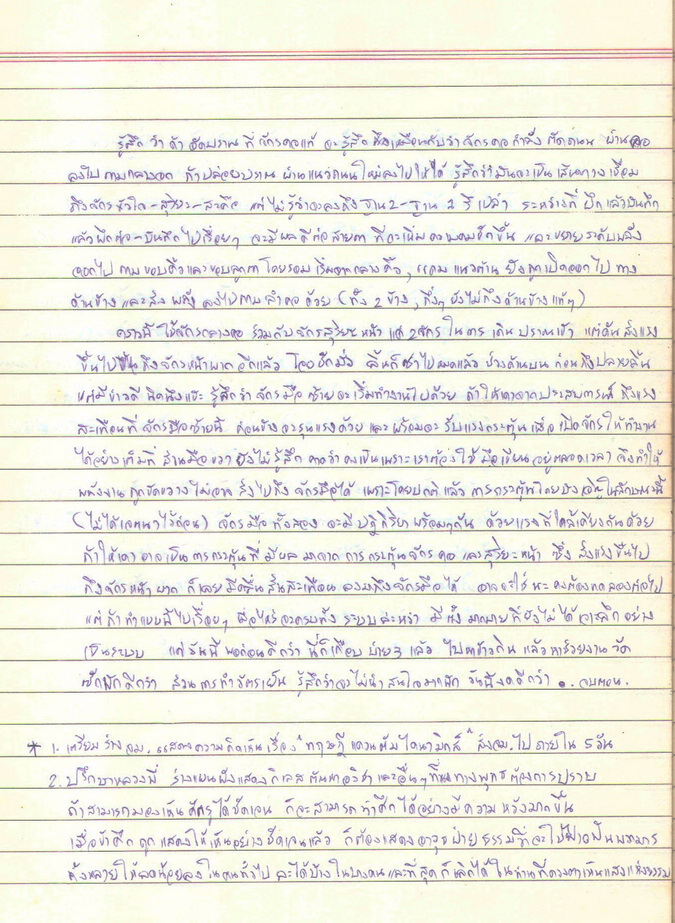 รู้สึกว่าถ้าอัดปราณที่จักรคอแก่ จะรู้สึกตึงเหมือนกับว่าจักรคอกำลังตัดถนน ผ่านคอ
ลงไปตามกลางอก ถ้าปล่อยปราณ ผ่านแนวถนนใหม่ลงไปให้ได้ รู้สึกว่ามันจะเป็นเส้นทางเชื่อม
ถึงจักรหัวใจ-สุริยะ-สะดือ แต่ไม่รู้ว่าจะลงถึงฐาน2-ฐาน 1 รึเปล่า ระหว่างที่ ฝึกแล้วบันทึก
แล้วฝึกต่อ-บันทึกไปเรื่อยๆ จะมีผลดีต่อสายตา ที่จะเพิ่มความคมชัดขึ้น และขยายระดับพลัง
ออกไป ตามขอบคิ้วและขอบลูกตา โดยรวม เริ่มจากกลางคิ้ว, และแนวด้าน ยังถูกเปิดออกไป ทาง
ด้านข้าง และส่ง พลัง ลงไปตามลำคอ ด้วย (ทั้ง 2 ข้าง, ถึงๆ ยังไม่ถึงด้านข้างแท้ๆ)
คราวนี้ ใช้จักรกลางคอ ร่วมกับจักรสุริยะ หน้า แค่ 2 จักร ในการ เดินปราณเข้า แต่ดันส่งแรง
ขึ้นไปถึงจักรหน้าผาก อีกแล้ว โอยชักมึน ลิ้นก็ชาไปหมดแล้ว ข้างด้านบน ก่อนถึงปลายลิ้น
แต่มีข่าวดี นิดนึงแฮะ รู้สึกว่าจักรมือ ซ้ายจะเริ่มทำงานไปด้วย ถ้าให้เดาจากประสบการณ์ ถึงแรง
สะเทือนที่ จักรมือซ้ายนี้ ค่อนข้างจะรุนแรงด้วย และ พร้อมจะ รับแรงกระตุ้น เพื่อ เปิดจักรให้ทำงาน
ได้อย่างเต็มที่ ส่วนมือขวา ยังไม่รู้สึก คาดว่าคงเป็นเพราะเราต้องใช้ มือเขียน อยู่ตลอดเวลา จึงทำให้
พลังงาน ถูกขัดขวาง ไม่อาจ ส่งไปถึง จักรมือได้ เพราะโดยปกติ แล้ว การกระตุ้นโดยบังเอิญในลักษณะนี้
(ไม่ได้เจตนาไว้ก่อน) จักรมือ ทั้งสอง จะมี ปฏิกิริยา พร้อมๆกัน ด้วยแรงที่ใกล้เคียงกันด้วย
ถ้าให้เดา อาจเป็นการกระตุ้นที่ มีผลมาจาก การกระตุ้นจักร คอ และสุริยะหน้า ซึ่ง ส่งแรงขึ้นไป
ถึงจักร หน้า ผาก ก็เลย มีคลื่น สั่นสะเทือน ลงมาถึงจักรมือ ได้ อาจจะใช่ นะ คงต้องทดลองต่อไป
แต่ ถ้า ทำแบบนี้ไปเรื่อยๆ เมื่อไหร่ จะครบทั้ง ระบบ ล่ะหว่า มี ทั้ง มากมาย ที่ยังไม่ ได้ เจาะลึก อย่าง
เป็นระบบ แต่ วันนี้ พอก่อนดีกว่า นี่ก็เกือบ บ่าย 3 แล้ว ไปหาข้าวกิน แล้ว หาช่วยงาน วัด
ซักพักดีกว่า ส่วน การทำวัตรเย็น รู้สึกว่าจะไม่น่า สนใจมากนัก วันนี้งดดีกว่า . จบตอน.
* 1. เตรียมร่าง จม. แสดงความคิดเห็นเรื่อง "ทฤษฎี แควนตัมไดนามิกส์" ส่ง จม. ไป ภายใน 5 วัน
2. ปรึกษาหลวงพี่ ร่างแผนผังแสดง กิเลส ตัณหา อวิชา และอื่นๆ ที่ทางพุทธ ต้องการปราบ
ถ้าสามารถมองเห็นศัตรูได้ชัดเจน ก็จะสามารถ ทำศึก ได้อย่างมีความ หวังมากขึ้น
เมื่อข้าศึก ถูก แสดงให้เห็นอย่างชัดเจนแล้ว ก็ต้องแสดงอาวุธ ฝ่าย ธรรมที่จะใช้ฟาดฟันพญามาร
ทั้งหลายให้ลดน้อยลง ในคนทั่วไป ละได้บ้าง ในบางคน และที่สุด ก็ เลิกได้ ในท่านที่ดวงตาเห็นแสงแห่งธรรม